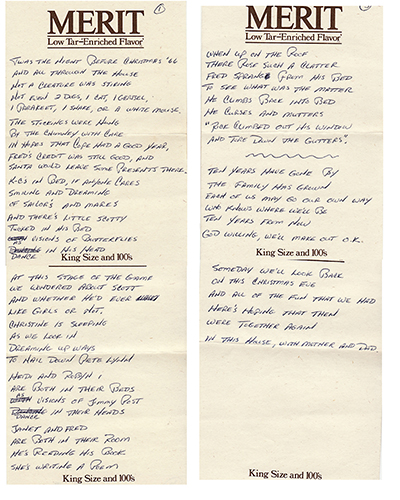 1
MERIT
Low Tar-Enriched Flavor
'TWAS THE NIGHT BEFORE CHRISTMAS '66
AND ALL THROUGH THE HOUSE
NOT A CREATURE WAS STIRING
NOT EVEN 2 DOGS, 1 CAT, 1 GERBEL,
1 PARAKEET, 1 SNAKE, OR A WHITE MOUSE.
THE STOCKINGS WERE HUNG
BY THE CHIMNEY WITH CARE
IN HOPES THAT CORP HAD A GOOD YEAR,
FRED'S CREDIT WAS STILL GOOD, AND
SANTA WOULD LEAVE SOME PRESENTS THERE.
IN BED, IF ANYONE CARES
SMILING AND DREAMING
OF SAILOR'S AND MARES
AND THERE'S LITTLE SCOTTY
TUCKED IN HIS BED
AS VISIONS OF BUTTERFLIES
DANCE IN HIS HEAD
King Size and 100's
AT THIS STAGE OF THE GAME
WE WONDERED ABOUT SCOTT
AND WHETHER HE'D EVER
LIKE GIRLS OR NOT.
CHRISTINE IS SLEEPING
AS WE LOOK IN
DREAMING UP WAYS
TO NAIL DOWN PETE LYNN
HEIDI AND ROBYN
ARE BOTH IN THEIR BEDS
AS VISIONS OF JIMMY POST
DANCE IN THEIR HEADS
JANET AND FRED
ARE BOTH IN THEIR ROOM
HE'S READING HIS BOOK
SHE'S WRITING A POEM
King Size and 100's
MERIT
Low Tar-Enriched Flavor
WHEN UP ON THE ROOF
THERE ROSE SUCH A CLATTER
FRED SPRANG FROM HIS BED
TO SEE WHAT WAS THE MATTER
HE CLIMBS BACK INTO BED
HE CURSES AND MUTTERS
"RICK CLIMBED OUT HIS WINDOW
AND TORE DOWN THE GUTTERS".
TEN YEARS HAVE GONE BY
THE FAMILY HAS GROWN
EACH OF US MAY GO OUR OWN WAY
WHO KNOWS WHERE WE'LL BE
TEN YEARS FROM NOW
GOD WILLING, WE'LL MAKE OUT O.K.
King Size and 100's
SOMEDAY WE'LL LOOK BACK
ON THIS CHRISTMAS EVE
AND ALL OF THE FUN THAT WE HAD
HERE'S HOPING THAT THEN
WE'RE TOGETHER AGAIN
IN THIS HOUSE, WITH MOTHER AND DAD
King Size and 100's